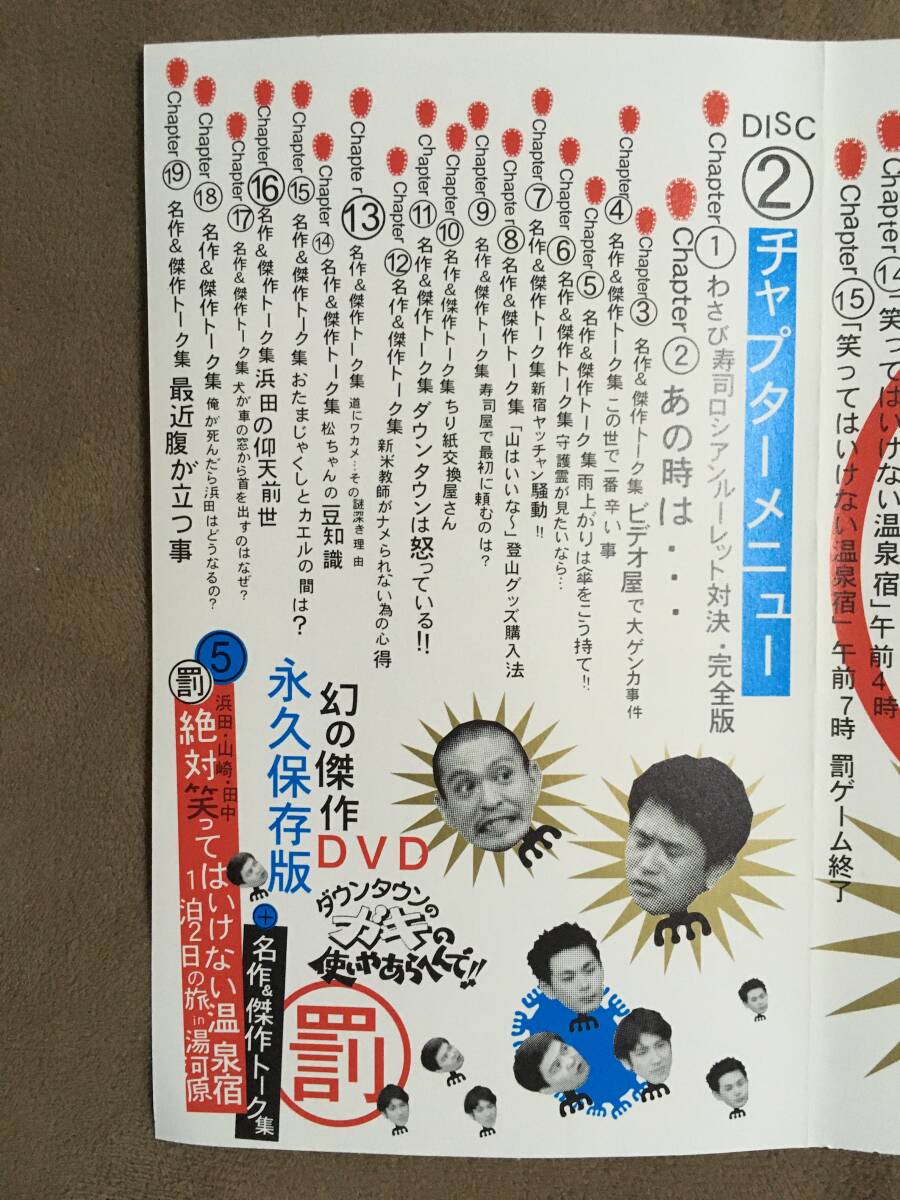 Chapter⑭「笑ってはいけない温泉宿」午前4時
Chapter⑮「笑ってはいけない温泉宿」午前7時 罰ゲーム終了
DISC②チャプターメニュー
Chapter①わさび寿司ロシアンルーレット対決・完全版
Chapter②あの時は・・・
Chapter③ 名作&傑作トーク集 ビデオ屋で大ゲンカ事件
Chapter④ 名作&傑作トーク集 この世で一番辛い事
Chapter⑤ 名作&傑作トーク集 雨上がりは傘をこう持て!!
Chapter⑥ 名作&傑作トーク集 守護霊が見たいなら…
Chapter⑦ 名作&傑作トーク集 新宿ヤッチャン騒動!!
Chapter⑧ 名作&傑作トーク集「山はいいな～」登山グッズ購入法
Chapter⑨ 名作&傑作トーク集 寿司屋で最初に頼むのは?
Chapter⑩ 名作&傑作トーク集 ちり紙交換屋さん
Chapter⑪ 名作&傑作トーク集 ダウンタウンは怒っている!!
Chapter⑫ 名作&傑作トーク集 新米教師がナメられない為の心得
Chapter⑬ 名作&傑作トーク集 道にワカメ…その謎深き理由
Chapter⑭ 名作&傑作トーク集 松ちゃんの豆知識
Chapter⑮ 名作&傑作トーク集 おたまじゃくしとカエルの間は?
Chapter⑯ 名作&傑作トーク集 浜田の仰天前世
Chapter⑰ 名作&傑作トーク集 犬が車の窓から首を出すのはなぜ?
Chapter⑱ 名作&傑作トーク集 俺が死んだら浜田はどうなるの?
Chapter⑲ 名作&傑作トーク集 最近腹が立つ事
幻の傑作DVD
永久保存版
ダウンタウンの
ガキの
使いやあらへんで!!
罰
+名作&傑作トーク集
⑤
浜田・山崎・田中
罰 絶対笑ってはいけない温泉宿
1泊2日の旅in湯河原